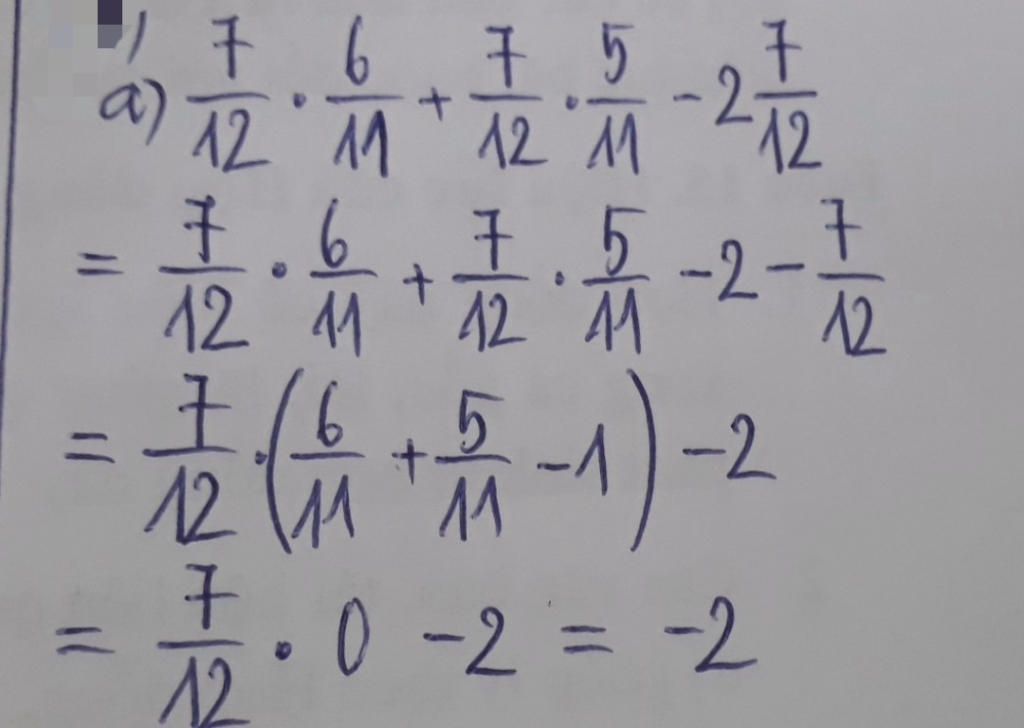 a) 7/12 · 6/11 + 7/12 · 5/11 - 2 7/12
= 7/12 · 6/11 + 7/12 · 5/11 - 2 - 7/12
= 7/12 · (6/11 + 5/11 - 1) - 2
= 7/12 · 0 - 2 = -2